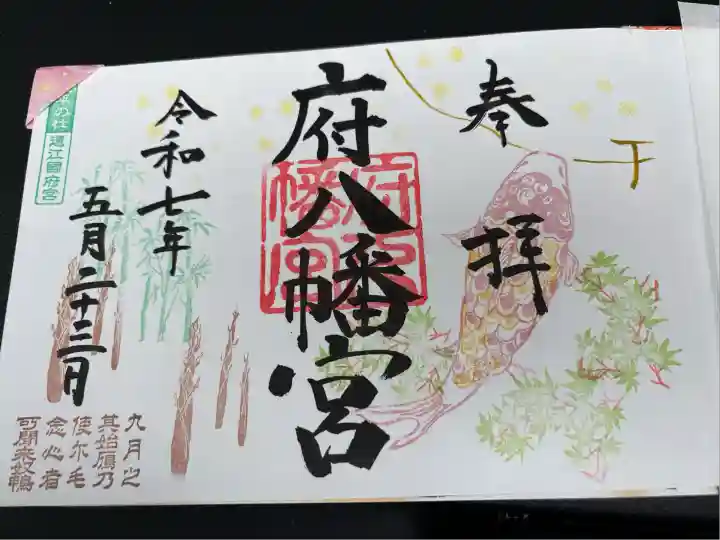 奉拝
府八幡宮
府八幡宮
令和七年
五月二十三日
の杜
遠江國府宮
九月之
其始鴈乃
使尓毛
念心者
可聞来奴鴨